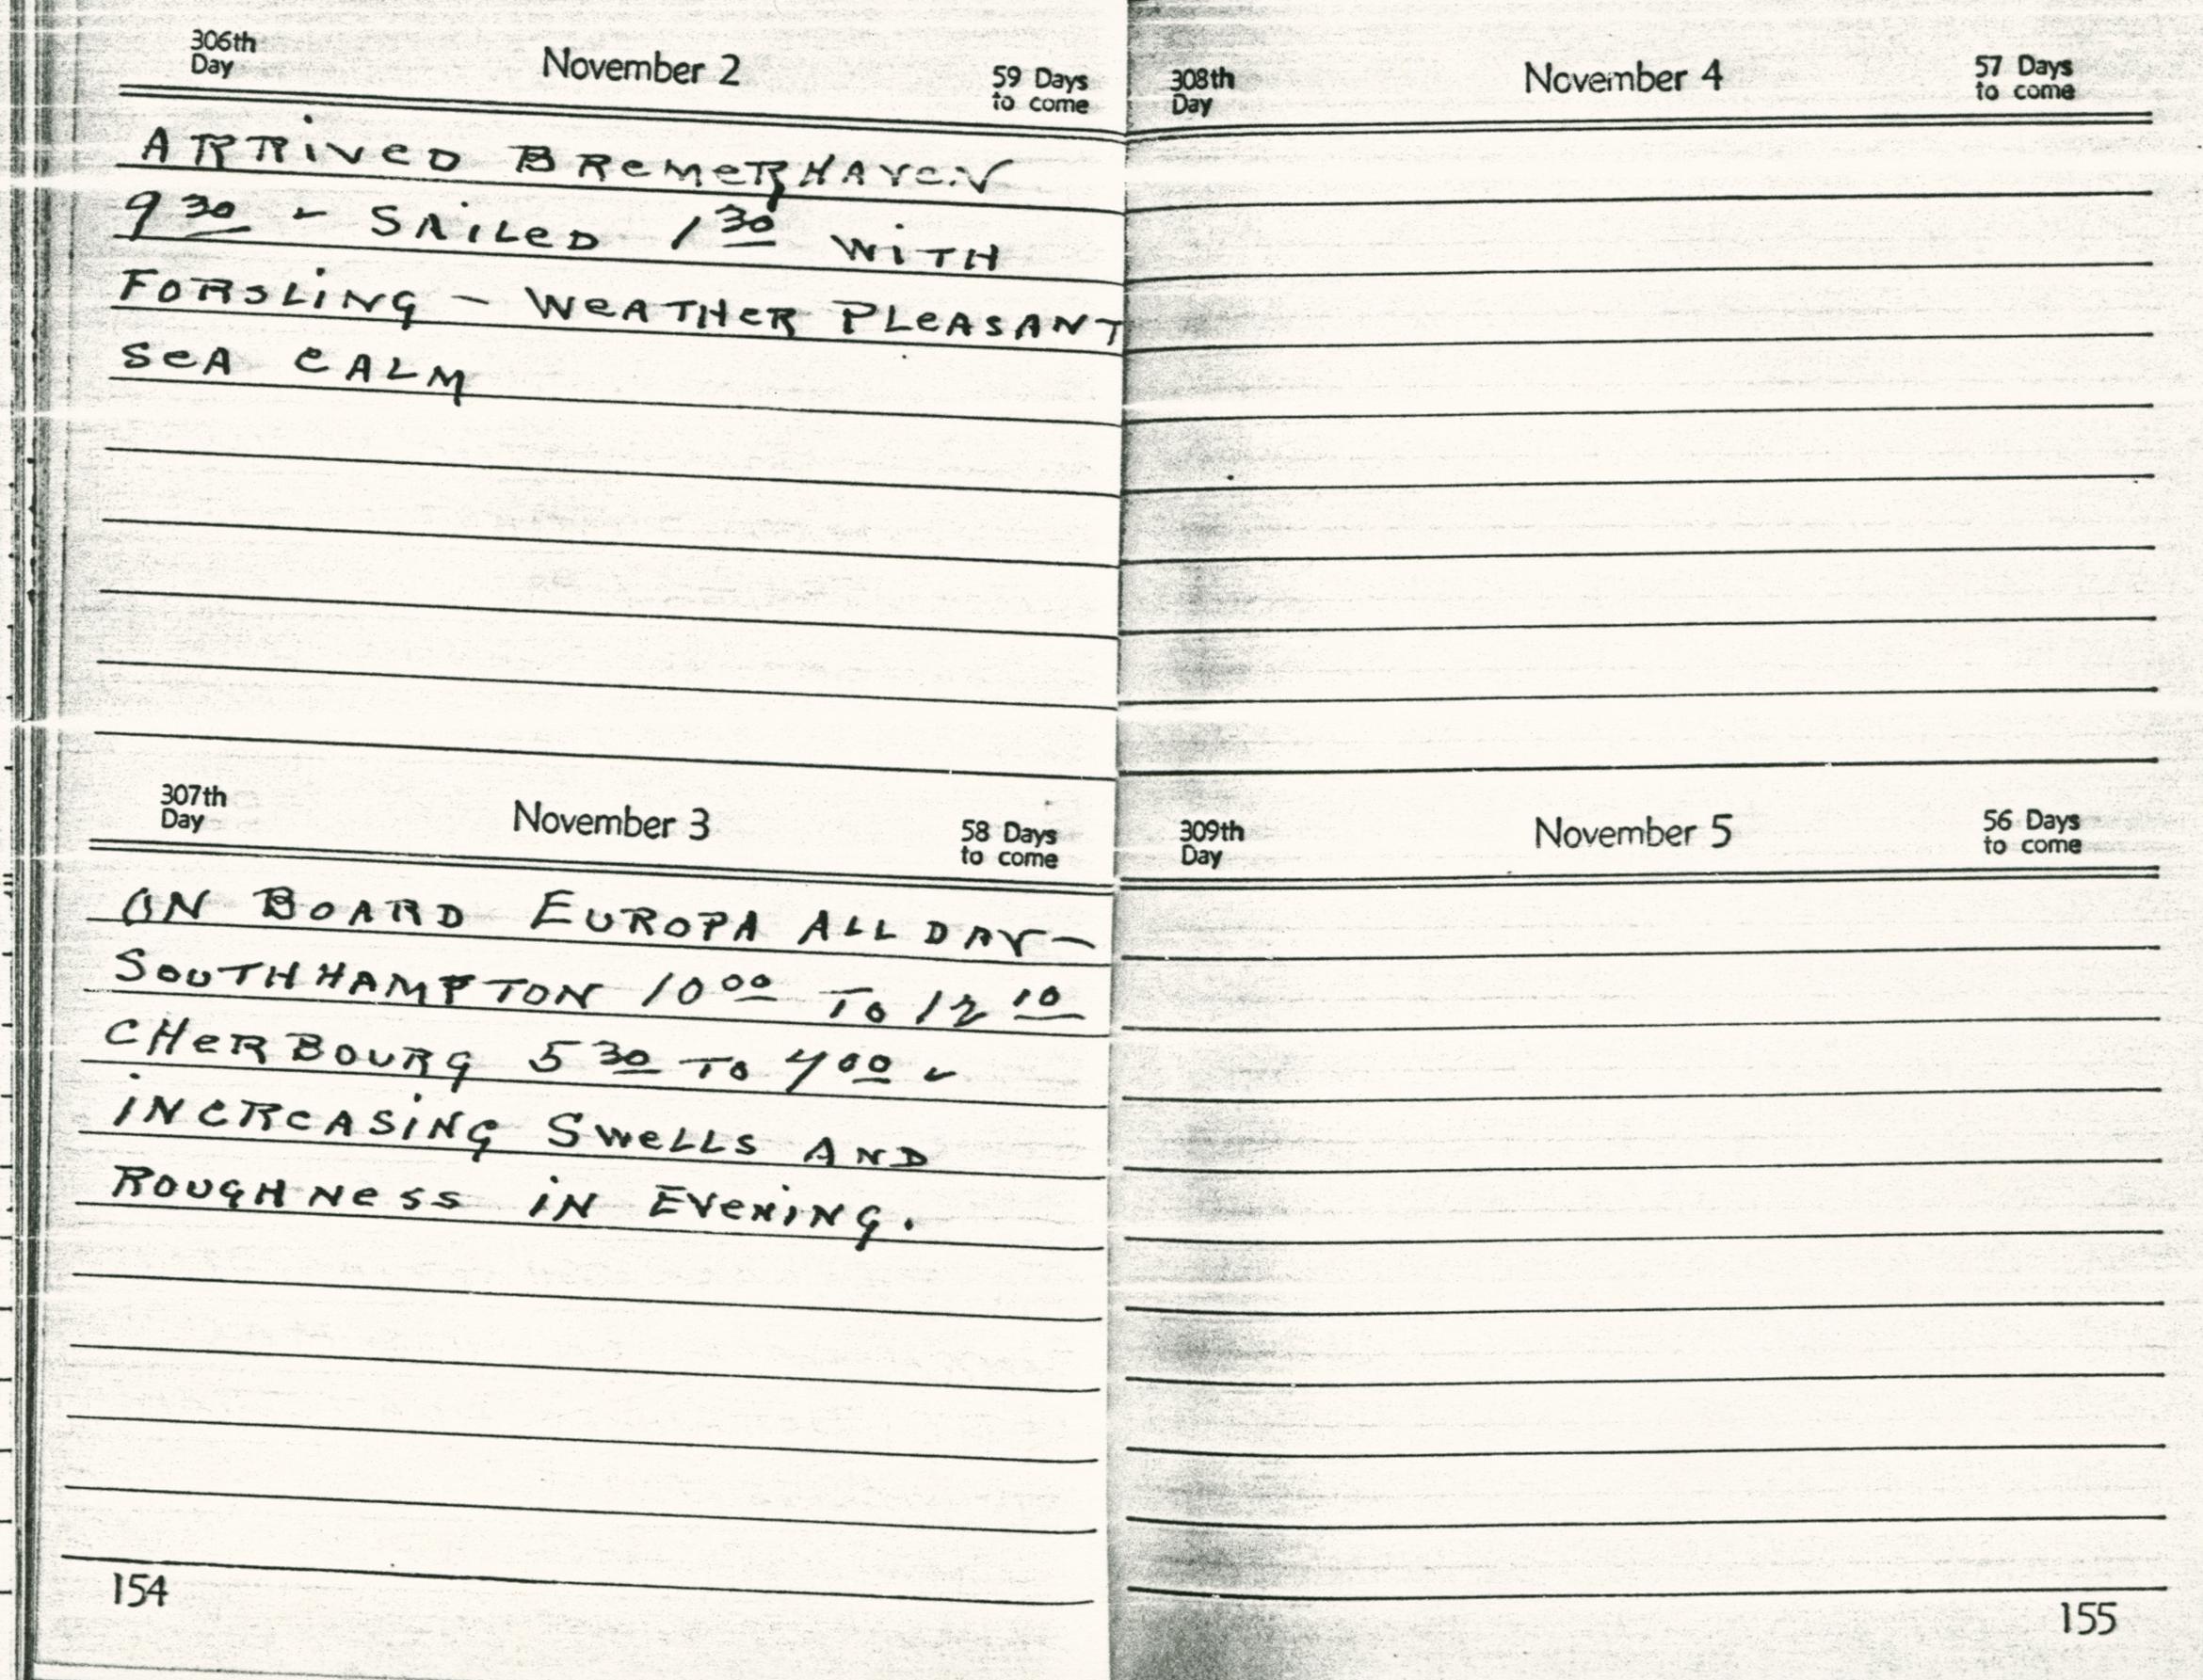 306th
Day
November 2
59 Days
to come
ARRIVED BREMERHAVEN
9 30 - SAILED 1 30 WITH
FORSLING - WEATHER PLEASANT
SEA CALM
307th
Day
November 3
58 Days
to come
ON BOARD EUROPA ALL DAY-
SOUTHHAMPTON 10 00 TO 12 10
CHERBOURG 5 30 TO 7 00 -
INCREASING SWELLS AND
ROUGHNESS IN EVENING.
154
308th
Day
November 4
57 Days
to come
309th
Day
November 5
56 Days
to come
155